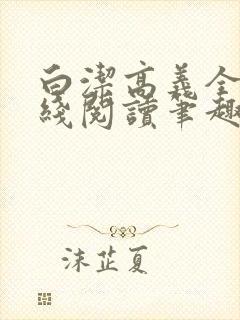 白潔高義全
綫閱讀筆趣
沫芷夏